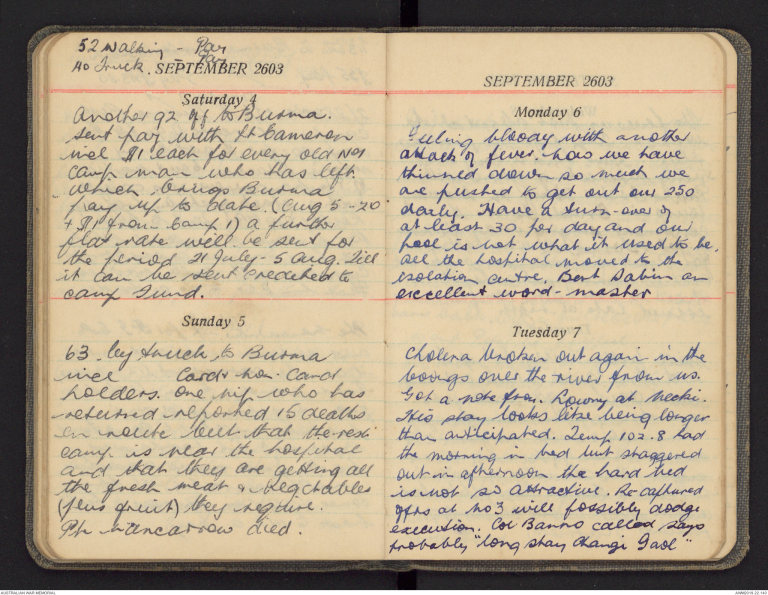 52 Walking - Par
40 Truck - Par
SEPTEMBER 2603
Saturday 4
Another 92 off to Burma.
Sent pay with Lt Cameron
incl $1 each for every old No1
Camp man who has left
which brings Burma
pay up to date. (Aug 5 - 20
+ $1 from Camp 1) a further
flat rate will be sent for
the period 21 July - 5 Aug. Till
it can be sent credited to
camp Fund.
Sunday 5
63 by truck to Burma
incl Card & non-Card
holders. One nip who has
returned reported 15 deaths
en route but that the rest
camp is near the hospital
and that they are getting all
the fresh meat & vegetables
(plus fruit) they require.
Pte Nancarrow died.
SEPTEMBER 2603
Monday 6
Feeling bloody with another
attack of fever. Now we have
thinned down so much we
are pushed to get out our 250
daily. Have a turn-over of
at least 30 per day and our
pool is not what it used to be.
All the hospital moved to the
isolation centre. Bert Sabin an
excellent ward-master
Tuesday 7
Cholera broken out again in the
boongs over the river from us.
Got a note from at Nechi.
His stay looks like being longer
than anticipated. Temp 102.8 had
the morning in bed but staggered
out in afternoon the hard bed
is not so attractive. Re-captured
offrs at No 3 will possibly dodge
execution. Col Banno called says
probably "long stay Changi Gaol"
AUSTRALIAN WAR MEMORIAL